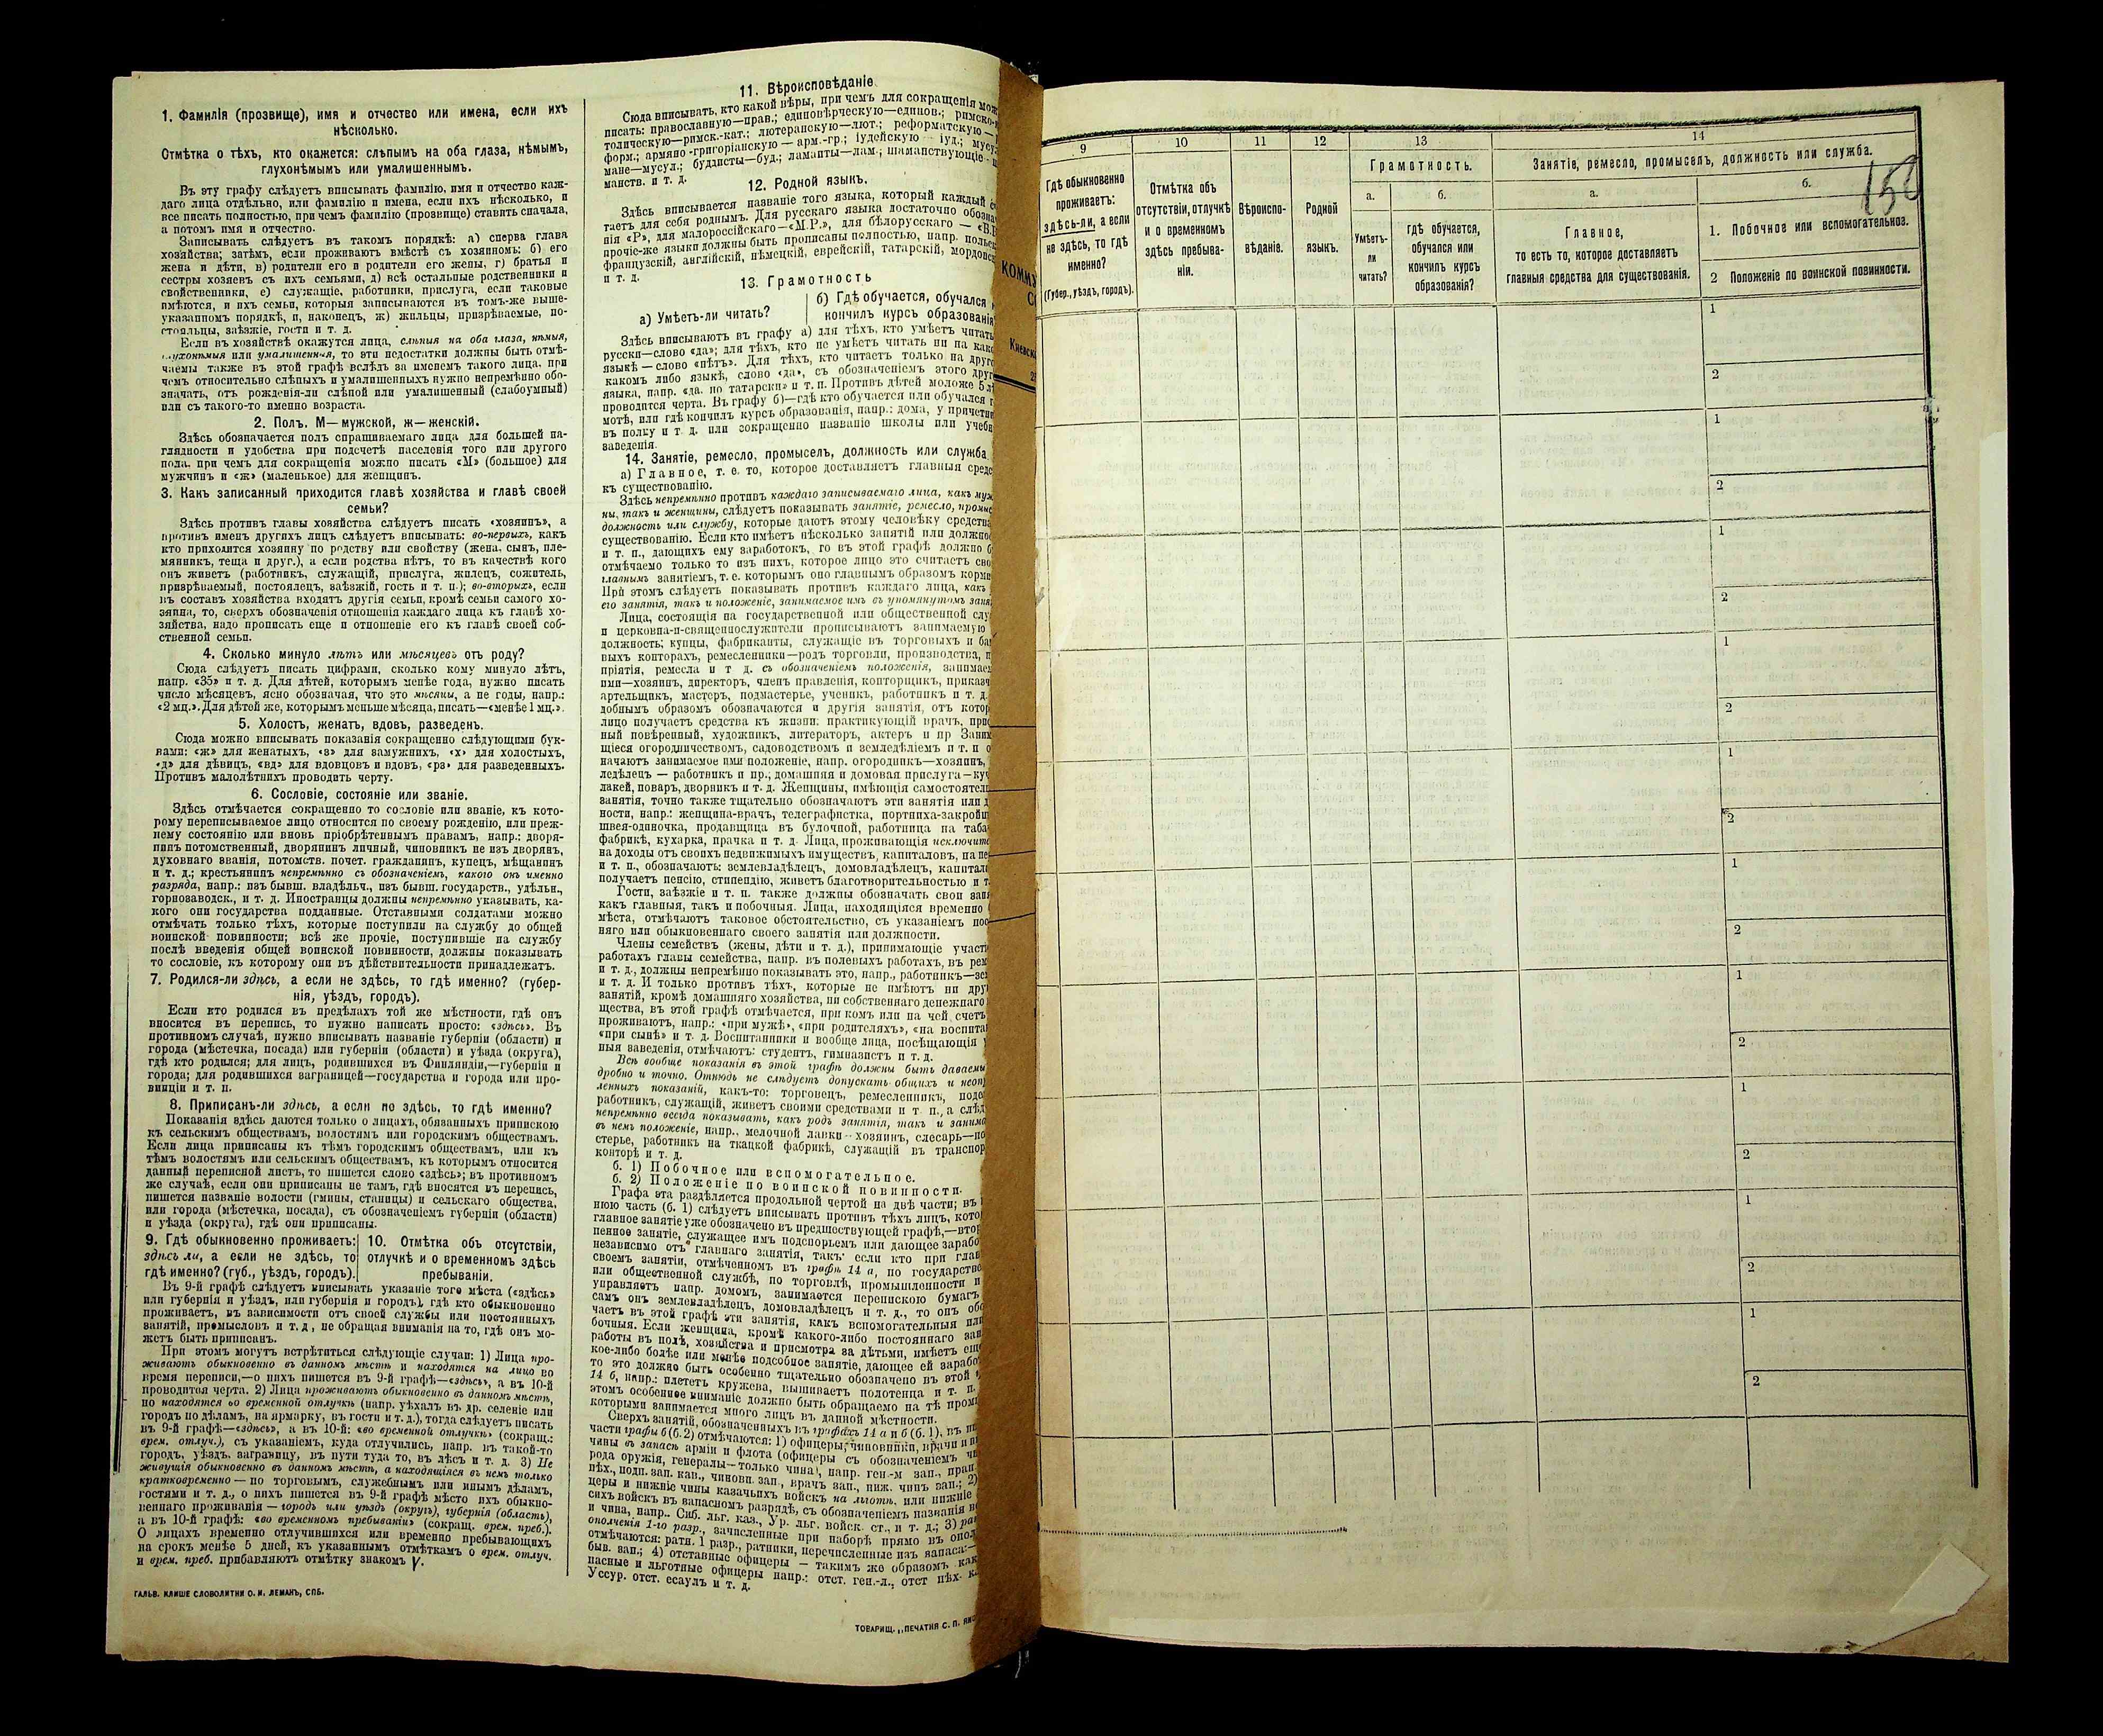 1. Фамилія (прозвище), имя и отчество или имена, если ихъ
нѣсколько.
Отмѣтка о тѣхъ, кто окажется: слѣпымъ на оба глаза, нѣмымъ,
глухонѣмымъ или умалишеннымъ.
Въ эту графу слѣдуетъ вписывать фамилію, имя и отчество каж-
даго лица отдѣльно, или фамилію и имена, если ихъ нѣсколько, и
все писать полностью, при чемъ фамилію (прозвище) ставить сначала,
а потомъ имя и отчество.
Записывать слѣдуетъ въ такомъ порядкѣ: а) сперва глава
хозяйства; затѣмъ, если проживаютъ вмѣстѣ съ хозяиномъ: б) его
жена и дѣти, в) родители его и родители его жены, г) братья и
сестры хозяевъ съ ихъ семьями, д) всѣ остальные родственники и
свойственники, е) служащіе, работники, прислуга, если таковые
имѣются, и ихъ семьи, которыя записываются въ томъ-же выше-
указанномъ порядкѣ, и, наконецъ, ж) жильцы, призрѣваемые, по-
стояльцы, заѣзжіе, гости и т. д.
Если въ хозяйствѣ окажутся лица, слѣпыя на оба глаза, нѣмыя,
глухонѣмыя или умалишенныя, то эти недостатки должны быть отмѣ-
чаемы также въ этой графѣ вслѣдъ за именемъ такого лица, при
чемъ относительно слѣпыхъ и умалишенныхъ нужно непремѣнно обо-
значать, отъ рожденія-ли слѣпой или умалишенный (слабоумный)
или съ такого-то именно возраста.
2. Полъ. М—мужской, ж—женскій.
Здѣсь обозначается полъ спрашиваемаго лица для большей на-
глядности и удобства при подсчетѣ населенія того или другого
пола, при чемъ для сокращенія можно писать «М» (большое) для
мужчинъ и «ж» (маленькое) для женщинъ.
3. Какъ записанный приходится главѣ хозяйства и главѣ своей
семьи?
Здѣсь противъ главы хозяйства слѣдуетъ писать «хозяинъ», а
противъ именъ другихъ лицъ слѣдуетъ вписывать: во-первыхъ, какъ
кто приходится хозяину по родству или свойству (жена, сынъ, пле-
мянникъ, теща и друг.), а если родства нѣтъ, то въ качествѣ кого
онъ живетъ (работникъ, служащій, прислуга, жилецъ, сожитель,
призрѣваемый, постоялецъ, заѣзжій, гость и т. п.); во-вторыхъ, если
въ составъ хозяйства входятъ другія семьи, кромѣ семьи самого хо-
зяина, то, сверхъ обозначенія отношенія каждаго лица къ главѣ хо-
зяйства, надо прописать еще и отношеніе его къ главѣ своей соб-
ственной семьи.
4. Сколько минуло лѣтъ или мѣсяцевъ отъ роду?
Сюда слѣдуетъ писать цифрами, сколько кому минуло лѣтъ,
напр. «35» и т. д. Для дѣтей, которымъ менѣе года, нужно писать
число мѣсяцевъ, ясно обозначая, что это мѣсяцы, а не годы, напр.:
«2 мц.». Для дѣтей же, которымъ меньше мѣсяца, писать—«менѣе 1 мц.».
5. Холостъ, женатъ, вдовъ, разведенъ.
Сюда можно вписывать показанія сокращенно слѣдующими бук-
вами: «ж» для женатыхъ, «з» для замужнихъ, «х» для холостыхъ,
«д» для дѣвицъ, «вд» для вдовцовъ и вдовъ, «рз» для разведенныхъ.
Противъ малолѣтнихъ проводить черту.
6. Сословіе, состояніе или званіе.
Здѣсь отмѣчается сокращенно то сословіе или званіе, къ кото-
рому переписываемое лицо относится по своему рожденію, или преж-
нему состоянію или вновь пріобрѣтеннымъ правамъ, напр.: дворя-
нинъ потомственный, дворянинъ личный, чиновникъ не изъ дворянъ,
духовнаго званія, потомств. почет. гражданинъ, купецъ, мѣщанинъ
и т. д.; крестьянинъ непремѣнно съ обозначеніемъ, какого онъ именно
разряда, напр.: изъ бывш. владѣльч., изъ бывш. государств., удѣльн.,
горнозаводск., и т. д. Иностранцы должны непремѣнно указывать, ка-
кого они государства подданные. Отставными солдатами можно
отмѣчать только тѣхъ, которые поступили на службу до общей
воинской повинности; всѣ же прочіе, поступившіе на службу
послѣ введенія общей воинской повинности, должны показывать
то сословіе, къ которому они въ дѣйствительности принадлежатъ.
7. Родился-ли здѣсь, а если не здѣсь, то гдѣ именно? (губер-
нія, уѣздъ, городъ).
Если кто родился въ предѣлахъ той же мѣстности, гдѣ онъ
вносится въ перепись, то нужно написать просто: «здѣсь». Въ
противномъ случаѣ, нужно вписывать названіе губерніи (области) и
города (мѣстечка, посада) или губерніи (области) и уѣзда (округа),
гдѣ кто родился; для лицъ, родившихся въ Финляндіи,—губерніи и
города; для родившихся заграницей—государства и города или про-
винціи и т. п.
8. Приписанъ-ли здѣсь, а если не здѣсь, то гдѣ именно?
Показанія здѣсь даются только о лицахъ, обязанныхъ припискою
къ сельскимъ обществамъ, волостямъ или городскимъ обществамъ.
Если лица приписаны къ тѣмъ городскимъ обществамъ, или къ
тѣмъ волостямъ или сельскимъ обществамъ, къ которымъ относится
данный переписной листъ, то пишется слово «здѣсь»; въ противномъ
же случаѣ, если они приписаны не тамъ, гдѣ вносятся въ перепись,
пишется названіе волости (гмины, станицы) и сельскаго общества,
или города (мѣстечка, посада), съ обозначеніемъ губерніи (области)
и уѣзда (округа), гдѣ они приписаны.
9. Гдѣ обыкновенно проживаетъ:
здѣсь ли, а если не здѣсь, то
гдѣ именно? (губ., уѣздъ, городъ).
10. Отмѣтка объ отсутствіи,
отлучкѣ и о временномъ здѣсь
пребываніи.
Въ 9-й графѣ слѣдуетъ вписывать указаніе того мѣста («здѣсь»
или губернія и уѣздъ, или губернія и городъ), гдѣ кто обыкновенно
проживаетъ, въ зависимости отъ своей службы или постоянныхъ
занятій, промысловъ и т. д., не обращая вниманія на то, гдѣ онъ мо-
жетъ быть приписанъ.
При этомъ могутъ встрѣтиться слѣдующіе случаи: 1) Лица про-
живаютъ обыкновенно въ данномъ мѣстѣ и находятся на лицо во
время переписи,—о нихъ пишется въ 9-й графѣ—«здѣсь», а въ 10-й
проводится черта. 2) Лица проживаютъ обыкновенно въ данномъ мѣстѣ,
но находятся во временной отлучкѣ (напр. уѣхалъ въ др. селеніе или
городъ по дѣламъ, на ярмарку, въ гости и т. д.), тогда слѣдуетъ писать
въ 9-й графѣ—«здѣсь», а въ 10-й: «во временной отлучкѣ» (сокращ.:
врем. отлуч.), съ указаніемъ, куда отлучились, напр. въ такой-то
городъ, уѣздъ, заграницу, въ пути туда то, въ лѣсъ и т. д. 3) Не
живущія обыкновенно въ данномъ мѣстѣ, а находящіяся въ немъ только
кратковременно — по торговымъ, служебнымъ или инымъ дѣламъ,
гостями и т. д., о нихъ пишется въ 9-й графѣ мѣсто ихъ обыкно-
веннаго проживанія — городъ или уѣздъ (округъ), губернія (область),
а въ 10-й графѣ: «во временномъ пребываніи» (сокращ. врем. преб.).
О лицахъ временно отлучившихся или временно пребывающихъ
на срокъ менѣе 5 дней, къ указаннымъ отмѣткамъ о врем. отлуч.
и врем. преб. прибавляютъ отмѣтку знакомъ V.
ГАЛЬВ. КЛИШЕ СЛОВОЛИТНИ О. И. ЛЕМАНЪ, СПБ.
11. Вѣроисповѣданіе.
Сюда вписывать, кто какой вѣры, при чемъ для сокращенія
писать: православную—прав.; единовѣрческую—единов.;
толическую—римск.-кат.; лютеранскую—лют.; реформатскую —
форм.; армяно-григоріанскую — арм.-гр.; іудейскую — іуд.;
мане—мусул.; буддисты—буд.; ламаиты—лам.; шаманствующіе
манств. и т. д.
12. Родной языкъ.
Здѣсь вписывается названіе того языка, который каждый
таетъ для себя роднымъ. Для русскаго языка достаточно
нія «Р», для малороссійскаго—«М.Р.», для бѣлорусскаго —
прочіе-же языки должны быть прописаны полностью, напр.
французскій, англійскій, нѣмецкій, еврейскій, татарскій,
и т. д.
13. Грамотность
а) Умѣетъ-ли читать?
б) Гдѣ обучается, обучался
кончилъ курсъ образованія
Здѣсь вписываютъ въ графу а) для тѣхъ, кто умѣетъ читать
русски—слово «да»; для тѣхъ, кто не умѣетъ читать ни на
языкѣ — слово «нѣтъ». Для тѣхъ, кто читаетъ только на
какомъ либо языкѣ, слово «да», съ обозначеніемъ этого
языка, напр. «да, по татарски» и т. п. Противъ дѣтей моложе 5
проводится черта. Въ графу б)—гдѣ кто обучается или обучался
мотѣ, или гдѣ кончилъ курсъ образованія, напр.: дома, у
въ полку и т. д. или сокращенно названіе школы или
заведенія.
14. Занятіе, ремесло, промыселъ, должность или служба.
а) Главное, т. е. то, которое доставляетъ главныя
къ существованію.
Здѣсь непремѣнно противъ каждаго записываемаго лица, какъ
ны, такъ и женщины, слѣдуетъ показывать занятіе, ремесло,
должность или службу, которые даютъ этому человѣку
существованію. Если кто имѣетъ нѣсколько занятій или
и т. п., дающихъ ему заработокъ, то въ этой графѣ должно
отмѣчаемо только то изъ нихъ, которое лицо это считаетъ
главнымъ занятіемъ, т. е. которымъ оно главнымъ образомъ
При этомъ слѣдуетъ показывать противъ каждаго лица, какъ
его занятія, такъ и положеніе, занимаемое имъ въ упомянутомъ
Лица, состоящія на государственной или общественной
и церковна-и-священнослужители прописываютъ занимаемую
должность; купцы, фабриканты, служащіе въ торговыхъ и
выхъ конторахъ, ремесленники—родъ торговли, производства,
пріятія, ремесла и т. д. съ обозначеніемъ положенія,
ими—хозяинъ, директоръ, членъ правленія, конторщикъ,
артельщикъ, мастеръ, подмастерье, ученикъ, работникъ и т. д.
добнымъ образомъ обозначаются и другія занятія, отъ
лицо получаетъ средства къ жизни: практикующій врачъ,
ный повѣренный, художникъ, литераторъ, актеръ и пр
щіеся огородничествомъ, садоводствомъ и земледѣліемъ и т. п
начаютъ занимаемое ими положеніе, напр. огородникъ—хозяинъ,
ледѣлецъ — работникъ и пр.; домашняя и домовая прислуга—
лакей, поваръ, дворникъ и т. д. Женщины, имѣющія
занятія, точно также тщательно обозначаютъ эти занятія или
ности, напр.: женщина-врачъ, телеграфистка,
швея-одиночка, продавщица въ булочной, работница на
фабрикѣ, кухарка, прачка и т. д. Лица, проживающія
на доходы отъ своихъ недвижимыхъ имуществъ, капиталовъ, на
и т. п., обозначаютъ: землевладѣлецъ, домовладѣлецъ,
получаетъ пенсію, стипендію, живетъ благотворительностью и
Гости, заѣзжіе и т. п. также должны обозначать свои
какъ главныя, такъ и побочныя. Лица, находящіяся временно
мѣста, отмѣчаютъ таковое обстоятельство, съ указаніемъ
няго или обыкновеннаго своего занятія или должности.
Члены семействъ (жены, дѣти и т. д.), принимающіе
работахъ главы семейства, напр. въ полевыхъ работахъ, въ
и т. д., должны непремѣнно показывать это, напр., работникъ—
и т. д. И только противъ тѣхъ, которые не имѣютъ ни
занятій, кромѣ домашняго хозяйства, ни собственнаго денежнаго
щества, въ этой графѣ отмѣчается, при комъ или на чей счетъ
проживаютъ, напр.: «при мужѣ», «при родителяхъ», «на
«при сынѣ» и т. д. Воспитанники и вообще лица, посѣщающія
ныя заведенія, отмѣчаютъ: студентъ, гимназистъ и т. д.
Всѣ вообще показанія въ этой графѣ должны быть даваемы
дробно и точно. Отнюдь не слѣдуетъ допускать общихъ и
ленныхъ показаній, какъ-то: торговецъ, ремесленникъ,
работникъ, служащій, живетъ своими средствами и т. п., а
непремѣнно всегда показывать, какъ родъ занятія, такъ и
въ немъ положеніе, напр., мелочной лавки—хозяинъ, слесарь—
стерье, работникъ на ткацкой фабрикѣ, служащій въ
конторѣ и т. д.
б. 1) Побочное или вспомогательное.
б. 2) Положеніе по воинской повинности.
Графа эта раздѣляется продольной чертой на двѣ части; въ
нюю часть (б. 1) слѣдуетъ вписывать противъ тѣхъ лицъ,
главное занятіе уже обозначено въ предшествующей графѣ,—
пенное занятіе, служащее имъ подспорьемъ или дающее
независимо отъ главнаго занятія, такъ: если кто при
своемъ занятіи, отмѣченномъ въ графѣ 14 а, по
или общественной службѣ, по торговлѣ, промышленности и
управляетъ напр. домомъ, занимается перепискою
самъ онъ землевладѣлецъ, домовладѣлецъ и т. д., то онъ
чаетъ въ этой графѣ эти занятія, какъ вспомогательныя или
бочныя. Если женщина, кромѣ какого-либо постояннаго
работы въ полѣ, хозяйства и присмотра за дѣтьми, имѣетъ
кое-либо болѣе или менѣе подсобное занятіе, дающее ей
то это должно быть особенно тщательно обозначено въ этой
14 б, напр.: плететъ кружева, вышиваетъ полотенца и т. п.
этомъ особенное вниманіе должно быть обращаемо на тѣ
которыми занимается много лицъ въ данной мѣстности.
Сверхъ занятій, обозначенныхъ въ графахъ 14 а и б (б. 1), въ
части графы б (б. 2) отмѣчаются: 1) офицеры, чиновники, врачи и
чины въ запасѣ арміи и флота (офицеры съ обозначеніемъ
рода оружія, генералы—только чина), напр. ген.-м зап.,
пѣх., подп. зап. кав., чиновн. зап., врачъ зап., ниж. чинъ зап.; 2)
церы и нижніе чины казачьихъ войскъ на льготѣ, или нижніе
сихъ войскъ въ запасномъ разрядѣ, съ обозначеніемъ названія
и чина, напр.. Сиб. льг. каз., Ур. льг. войск. ст., и т. д.; 3)
ополченія 1-го разр., зачисленные при наборѣ прямо въ
отмѣчаются: ратн. 1 разр., ратники, перечисленные изъ запаса:—
быв. зап.; 4) отставные офицеры — такимъ же образомъ
пасные и льготные офицеры напр.: отст. ген.-л., отст пѣх.
Уссур. отст. есаулъ и т. д.
ТОВАРИЩ. „ПЕЧАТНЯ С. П.
9
10
11
12
13
14
Грамотность.
Занятіе, ремесло, промыселъ, должность или служба.
150
Гдѣ обыкновенно
проживаетъ:
здѣсь-ли, а если
не здѣсь, то гдѣ
именно?
(Губер., уѣздъ, городъ).
Отмѣтка объ
отсутствіи, отлучкѣ
и о временномъ
здѣсь пребыва-
ніи.
Вѣроиспо-
вѣданіе.
Родной
языкъ.
а.
Умѣетъ-
ли
читать?
б.
гдѣ обучается,
обучался или
кончилъ курсъ
образованія?
а.
Главное,
то есть то, которое доставляетъ
главныя средства для существованія.
б.
1. Побочное или вспомогательное.
2 Положеніе по воинской повинности.
1
2
1
2
1
2
1
2
1
2
1
2
1
2
1
2
1
2
1
2